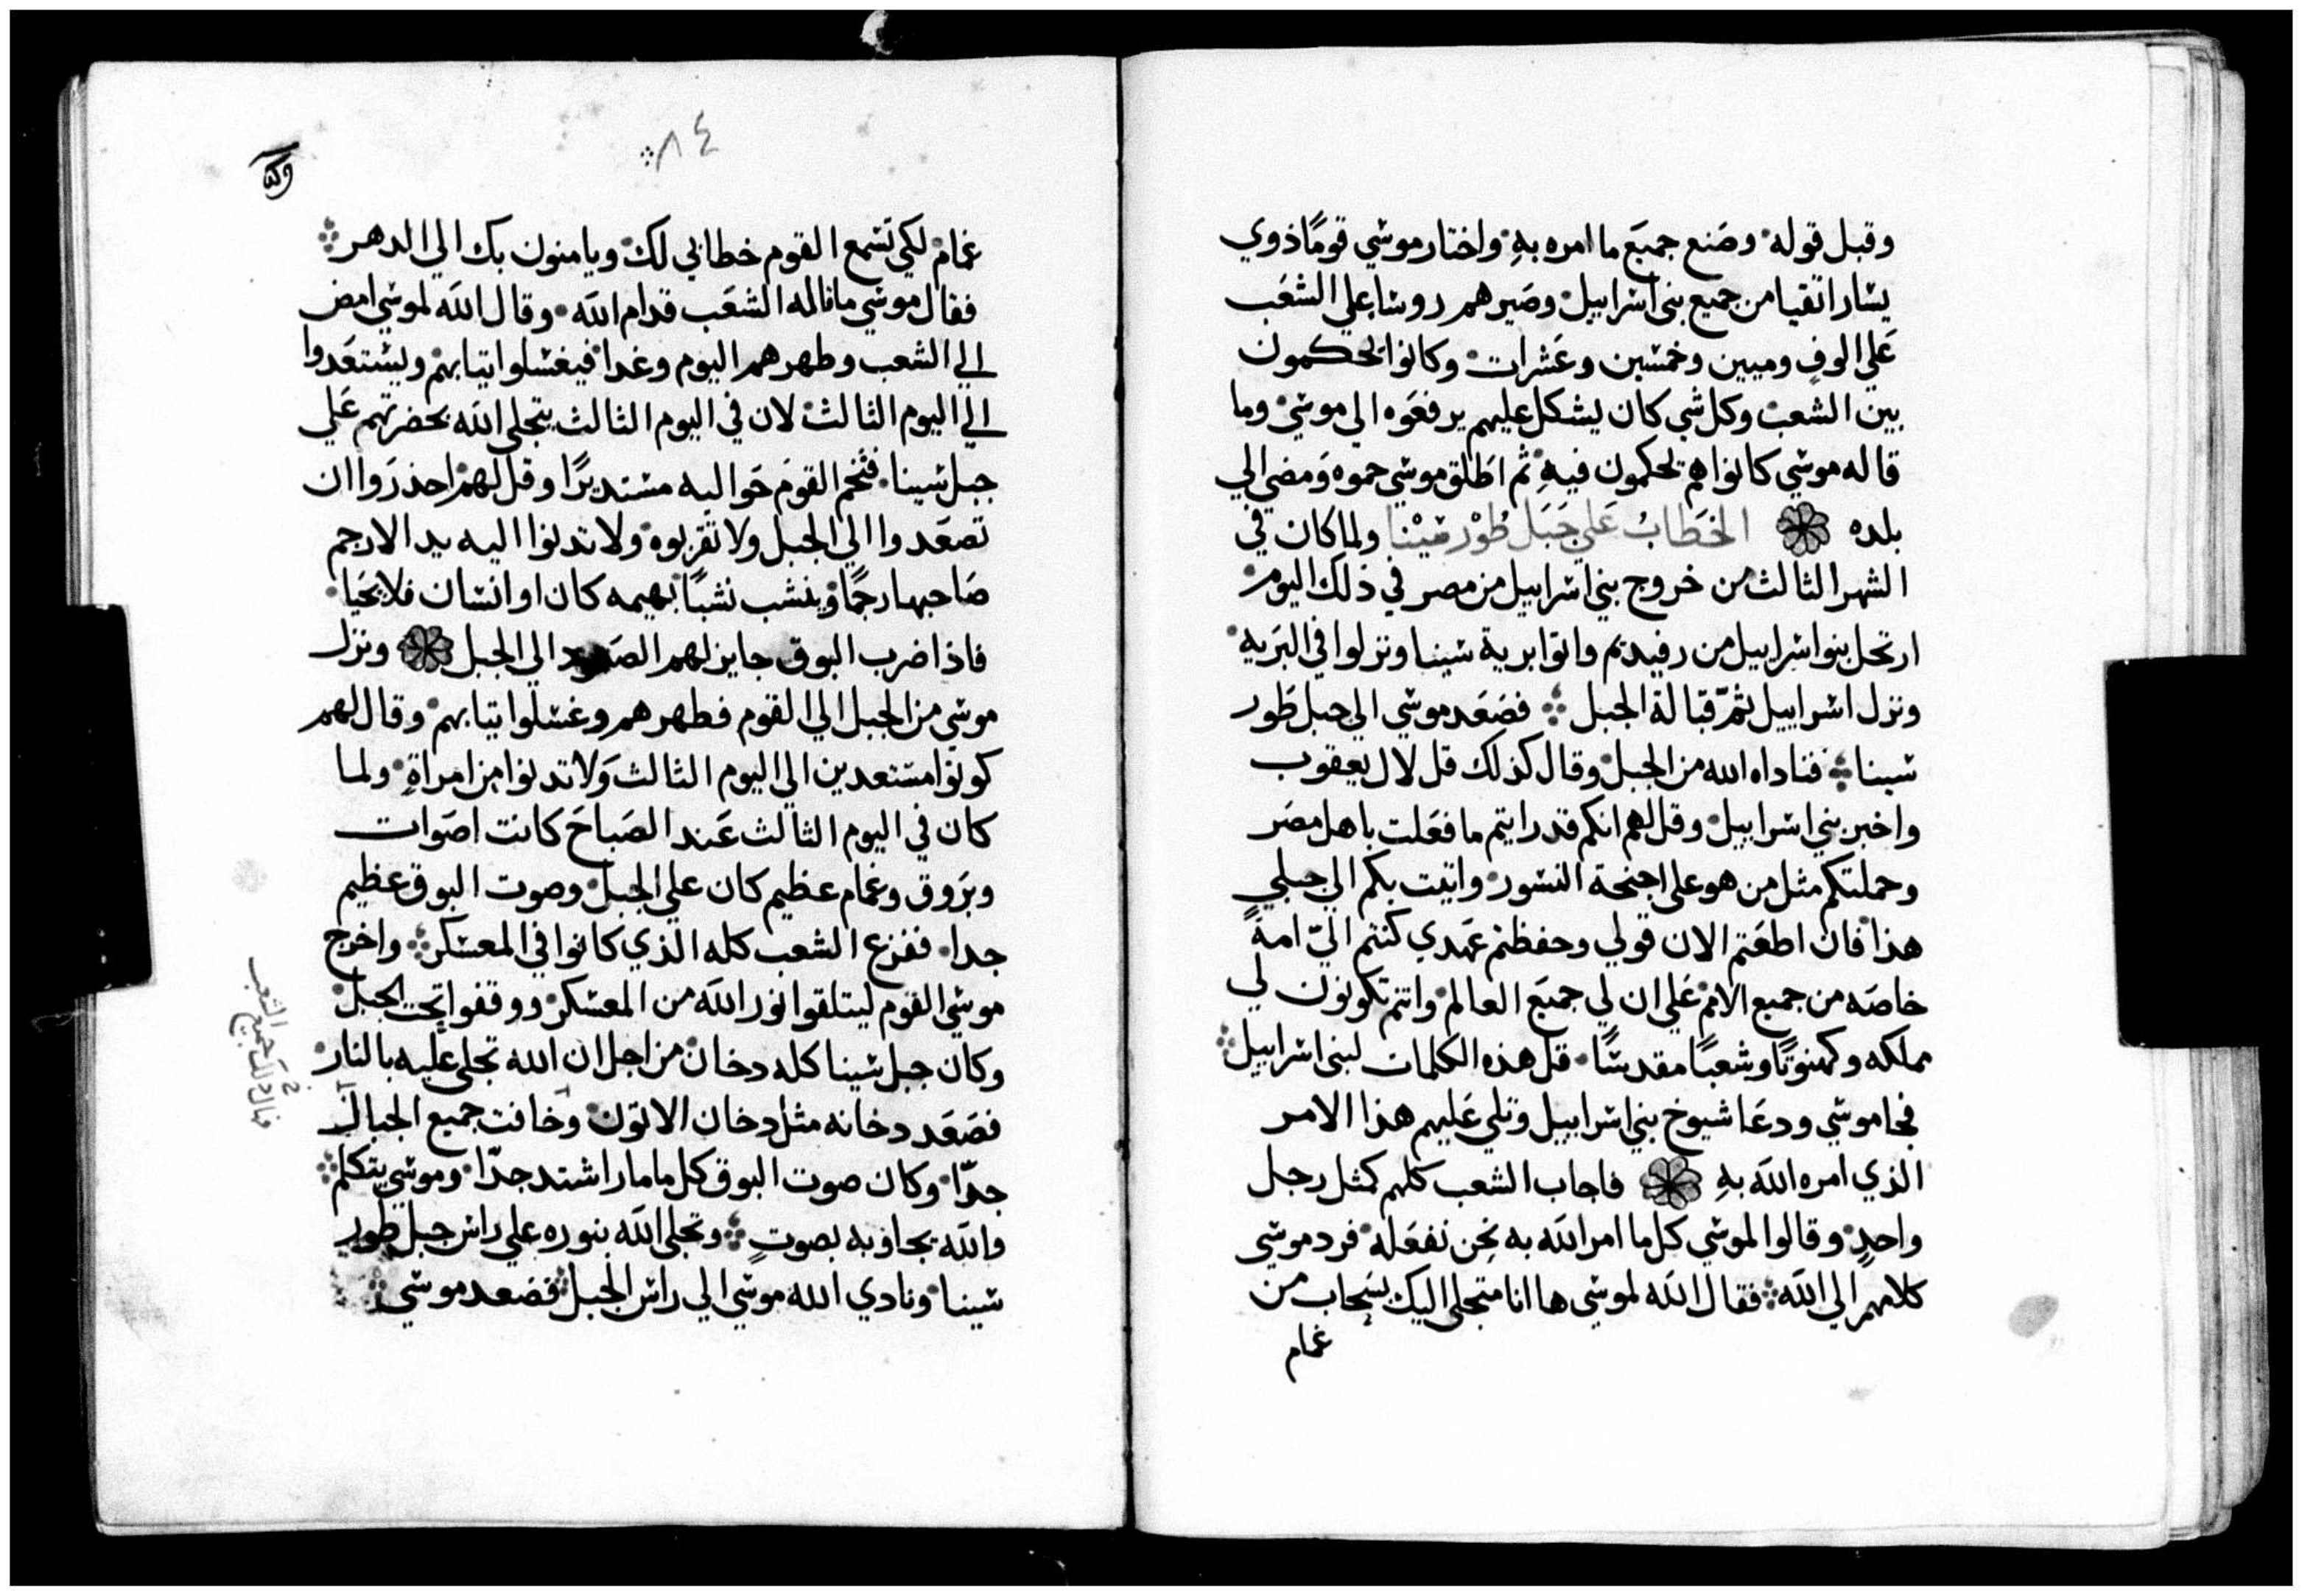 وقبل قوله وصَنع جميَع ما امره بهِ واختار موسي قومًا ذوي
يسار اتقيا من جميع بنى اسراييل وصَيرهم روسا علي الشعَب
عَلي الوفٍ وميين وخمسين وعَشرات وكانوا يحكمون
بين الشعب وكل شي كان يشكل عليهم يرفعَوه الي موسي وما
قاله موسي كانوا هم يحكمون فيهِ ثم اطَلق موسي حموه وَمضي الي
بلده الخَطابُ عَلي جَبَل طُوْر سَيْنا ولما كان في
الشهر الثالث من خروج بني اسراييل من مصر في ذلك اليوم
ارتحل بنو اسراييل من رفيديم واتوا برية سينا ونزلوا في البَريه
ونزل اسراييل ثمّ قبالة الجبل فصَعَد موسي الي جبل طَور
سينا فناداه الله من الجبل وقال كذلك قل لال يعقوب
واخبر بني اسراييل وقل لهم انكم قد رايتم ما فعَلت باهل مصَر
وحملتكم مثل من هو على اجنحة النسور واتيت بكم الي جبلي
هذا فان اطعَتم الان قولي وحفظتم عَهدي كنتم اليّ امةً
خاصَه من جميع الامم عَلي ان لي جميَع العالم وانتم تكونون لي
مملكه وكهنوتًا وشعبًا مقدسًا قل هذه الكلمات لبنى اسراييل
فجا موسي ودعَا شيوخ بني اسراييل وتلي عَليهم هذا الامر
الذي امره الله بهِ فاجاب الشعب كلهم كمثل رجل
واحدٍ وقالوا لموسي كل ما امر الله به نحن نفعَله فرد موسي
كلامهم الي الله فقال الله لموسي ها انا متجلى اليك بسَحاب من
غمام
٨٤
غمام لكي تسمع القوم خطابي لك ويامنون بك الي الدهر
فقال موسي ما قاله الشعَب قدام الله وقال الله لموسي امض
الي الشعب وطهرهم اليوم وغدا فيغسلوا ثيابهم ويستعَدوا
الي اليوم الثالث لان في اليوم الثالث يتجلى الله بحضرتهم عَلي
جبل سينا فتخم القوم حَواليه مستديرًا وقل لهم احذرَوا ان
تصعَدوا الي الجبل ولا تقربوه ولا تدنوا اليه يد الا رجم
صَاحبها رجمًا وينشب نشبًا بهيمه كان او انسان فلا يحَيا
فاذا ضرب البوق جايز لهم الصَعود الي الجبل ونزل
موسي من الجبل الي القوم فطهرهم وغسلوا ثيابهم وقال لهم
كونوا مستعدين الي اليوم الثالث وَلا تدنوا من امراةٍ ولما
كان في اليوم الثالث عَند الصَباحَ كانت اصَوات
وبَروق وغمام عظيم كان علي الجبل وصوت البوق عظيم
جدا ففزع الشعب كله الذي كانوا في المعسكر واخرج
موسي القوم ليتلقوا نور الله من المعسكر ووقفوا تحت الجبل
وكان جبل سينا كله دخان من اجل ان الله تجلى عليه بالنار
فصَعَد دخانه مثل دخان الاتون وخافت جميع الجبال
جدًا وكان صوت البوق كل ما مار اشتد جدًا وموسي يتكلم
والله يجاوبه بصوتٍ وتجلى الله بنوره علي راس جبل طور
سينا ونادي الله موسي الي راس الجبل فصَعد موسي
جميع الشعب